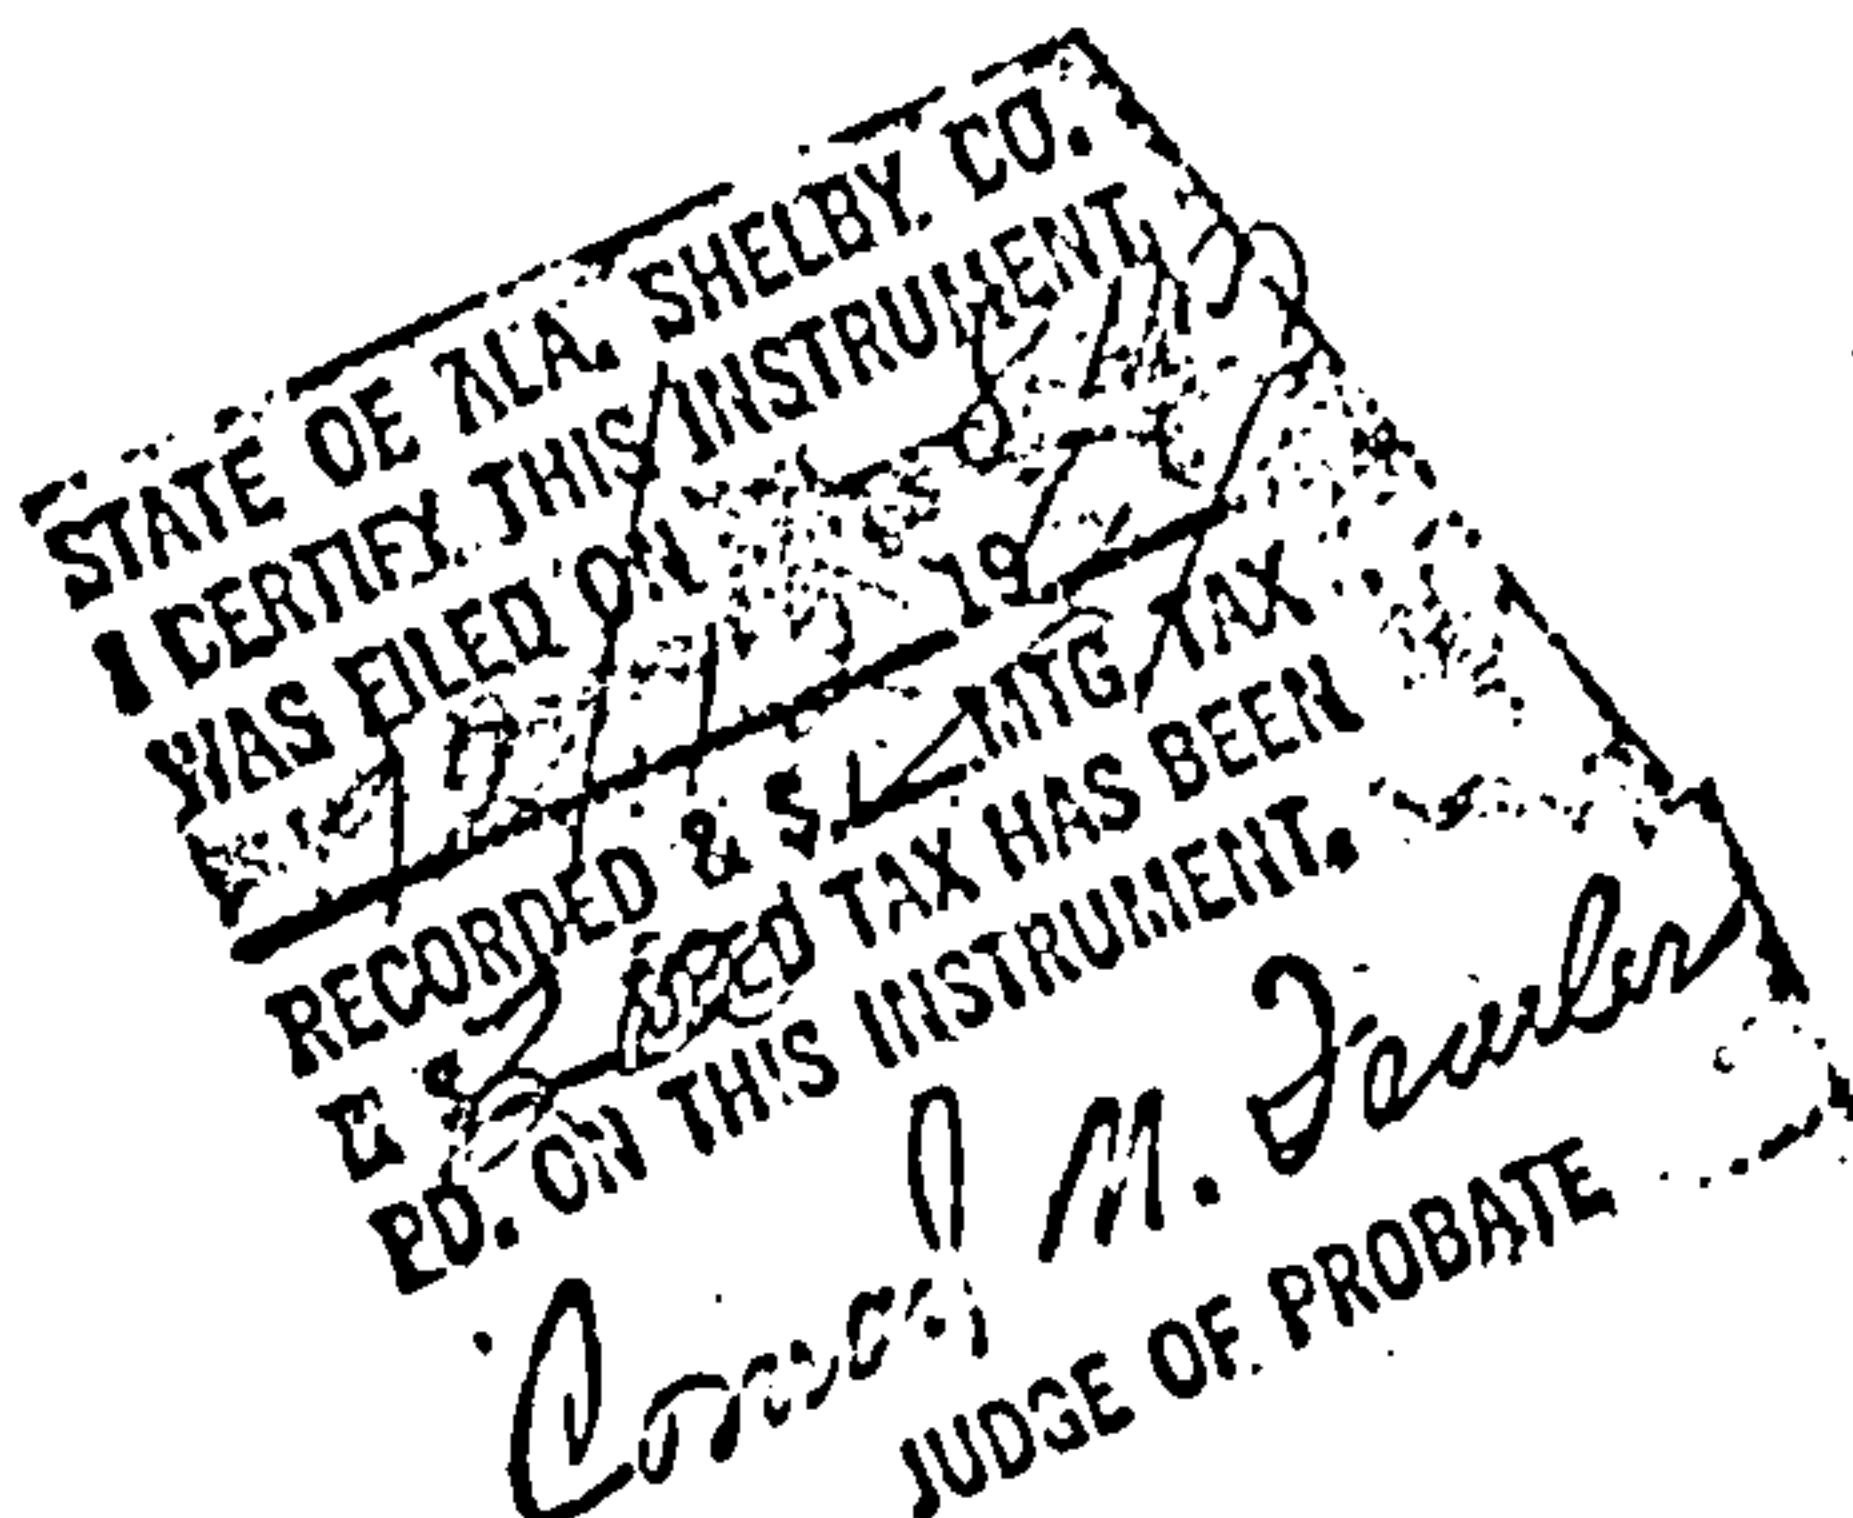 STATE OF ALA. SHELBY CO.
I CERTIFY THIS INSTRUMENT
WAS FILED ON
19
RECORDED & $ MTG. TAX
& $ DEED TAX HAS BEEN
PD. ON THIS INSTRUMENT.
Conrad M. Fowler
JUDGE OF PROBATE